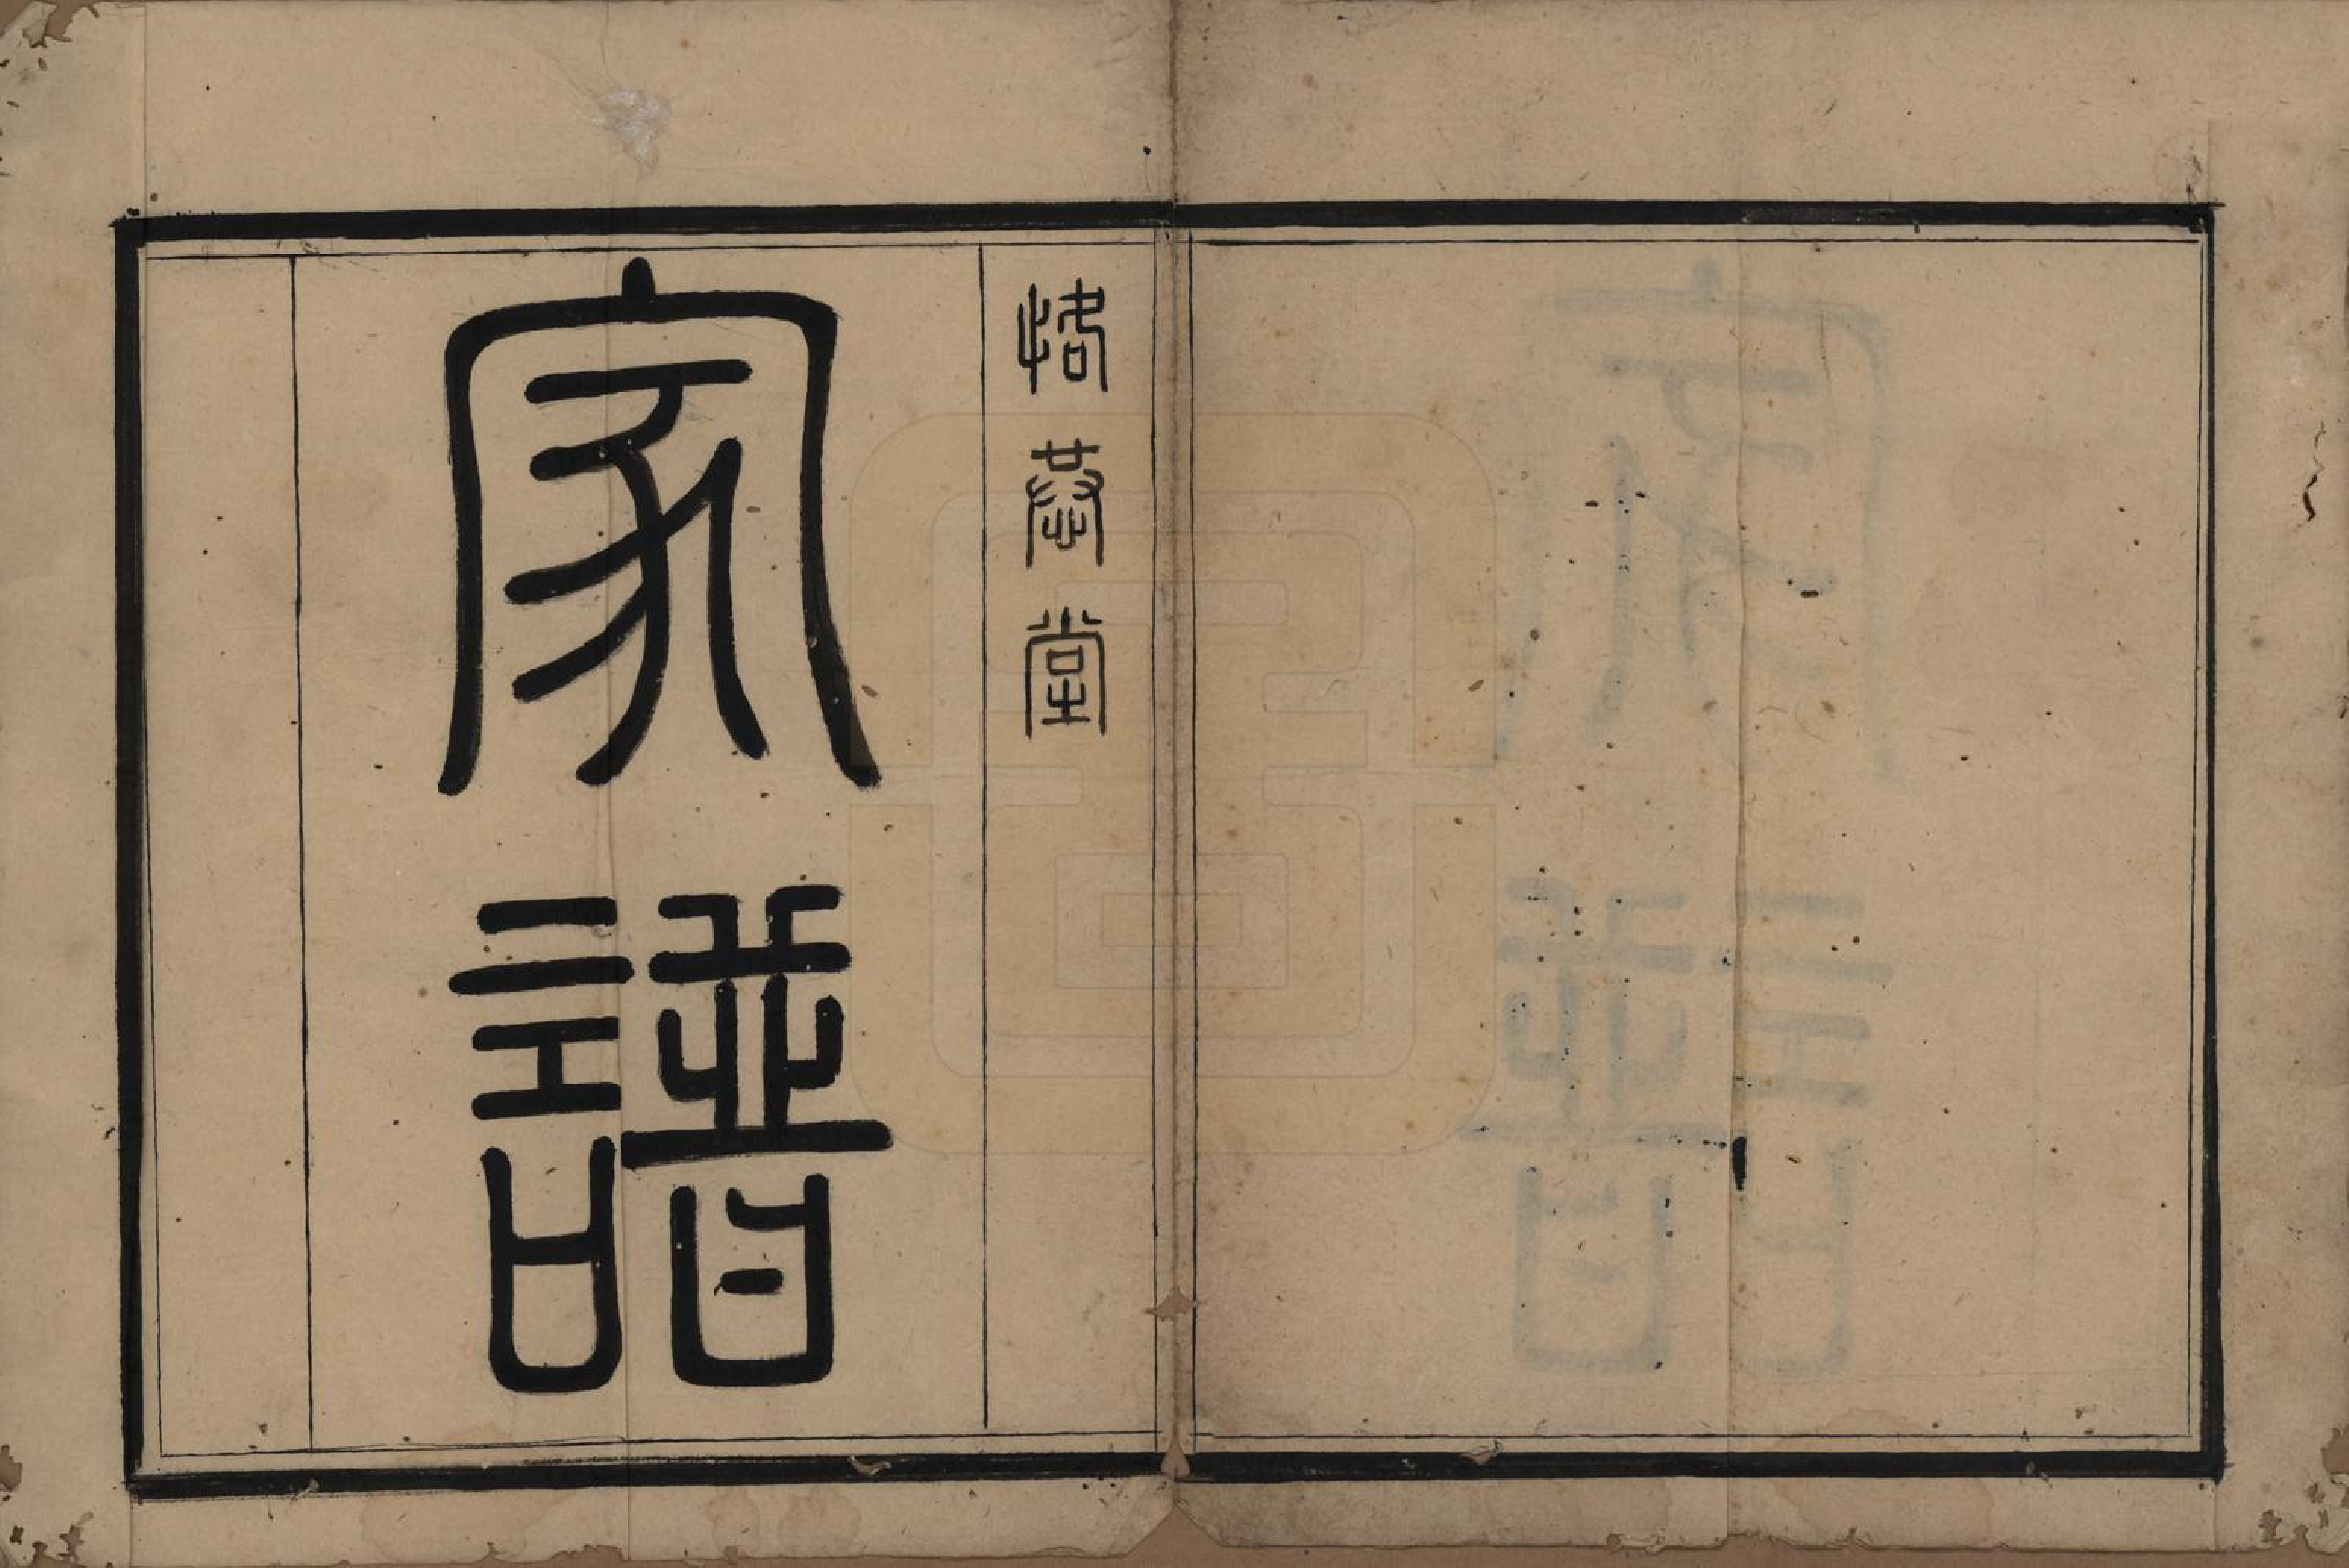 恪恭堂
家譜